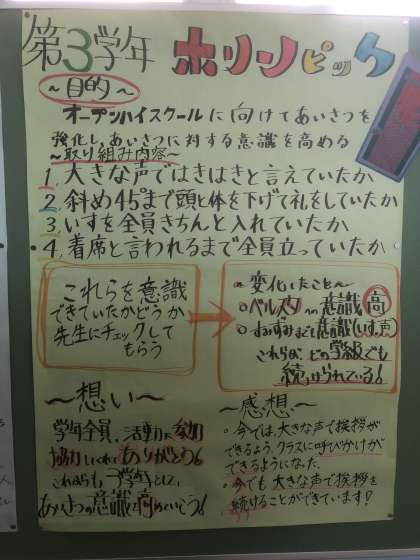 第3学年 ホリンピック
～目的～
オープンハイスクールに向けてあいさつを
強化し、あいさつに対する意識を高める
～取り組み内容～
1、大きな声ではきはきと言えていたか
2、斜め45°まで頭と体を下げて礼をしていたか
3、いすを全員きちんと入れていたか
4、着席と言われるまで全員立っていたか
これらを意識
できていたかどうか
先生にチェックして
もらう
～変化したこと～
○ベルスタへの意識高
○すみずみまで意識(いす,声)
これらがどの学級でも
続けられている!
～想い～
学年全員、活動に参加
協力してくれてありがとう!
これからも3学年として、
あいさつの意識を高めていこう!
～感想～
・今では、大きな声で挨拶が
できるよう、クラスに呼びかけが
できるようになった。
・今でも大きな声で挨拶を
続けることができています!